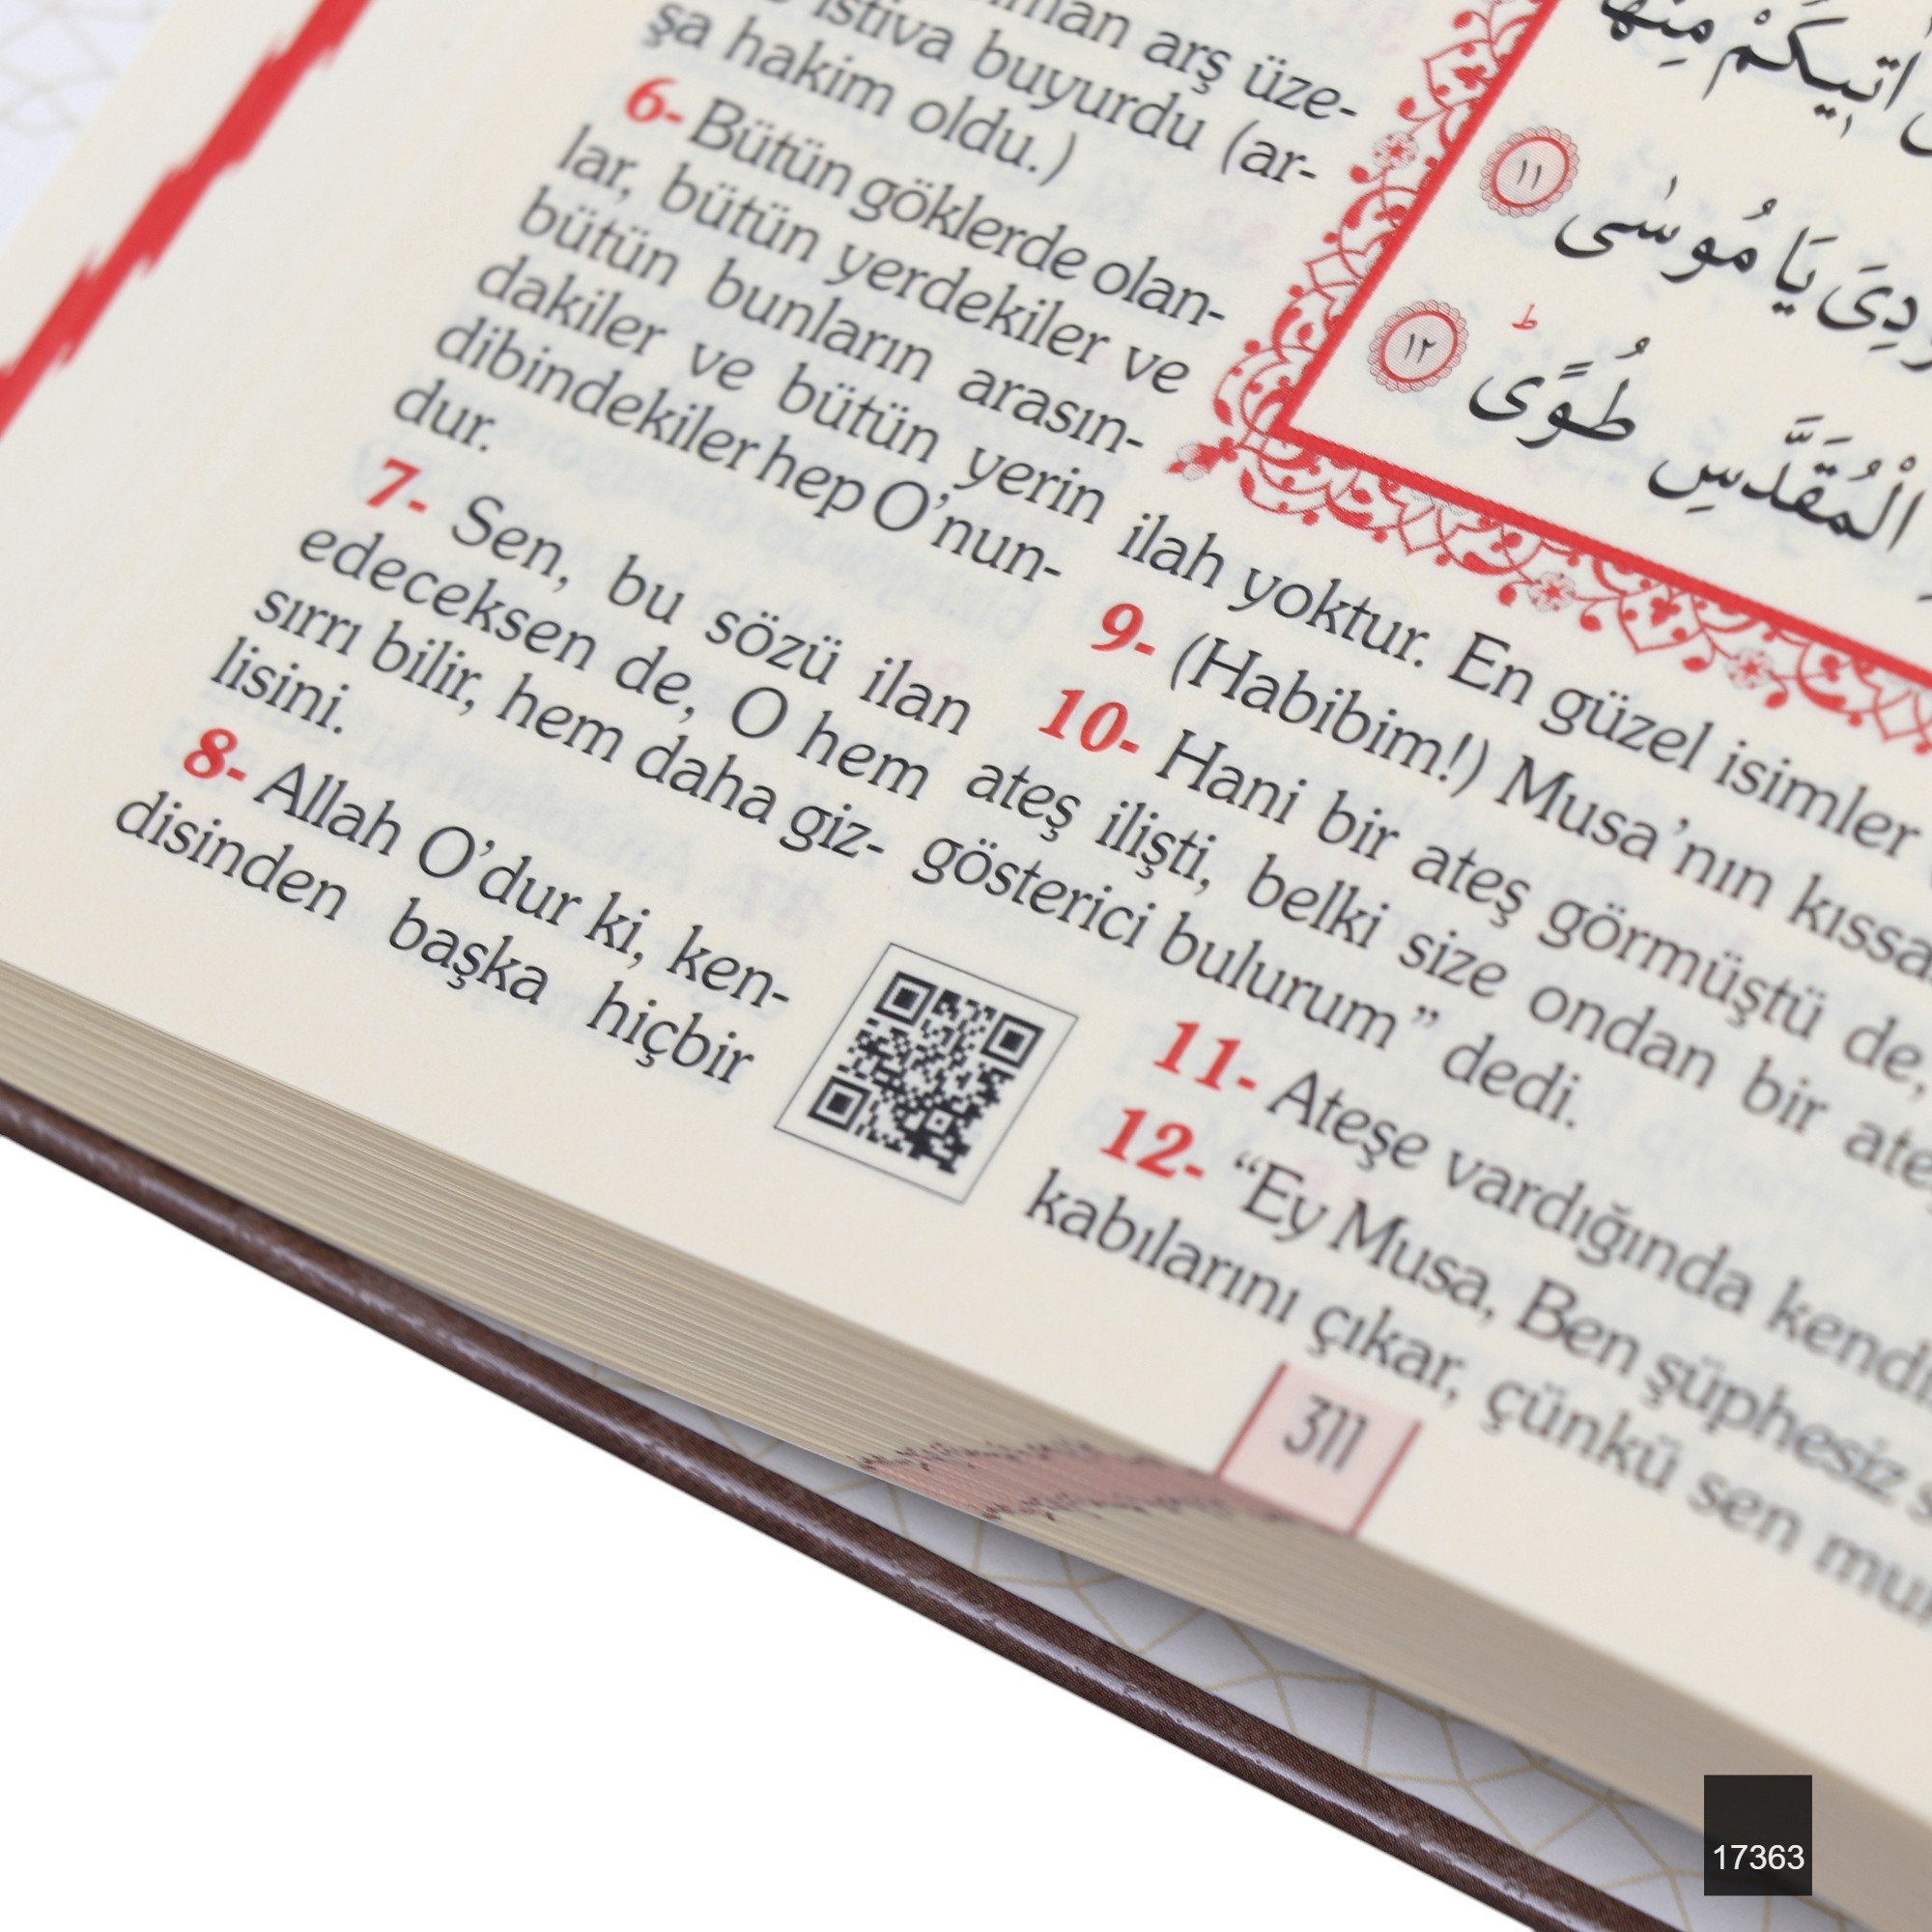 arş üze-
istiva buyurdu (ar-
şa hakim oldu.)
6- Bütün göklerde olan-
lar, bütün yerdekiler ve
bütün bunların arasın-
dakiler ve bütün yerin
dibindekiler hep O’nun-
dur.
7- Sen, bu sözü ilan
edeceksen de, O hem
sırrı bilir, hem daha giz-
lisini.
8- Allah O’dur ki, ken-
disinden başka hiçbir
ilah yoktur. En güzel isimler
9- (Habibim!) Musa’nın
10- Hani bir ateş görmüştü de,
ateş ilişti, belki size ondan bir
gösterici bulurum” dedi.
11- Ateşe vardığında
12- “Ey Musa, Ben şüphesiz
kabılarını çıkar, çünkü sen
اٰتٖيكُمْ مِنْهَا
يَا مُوسٰى ١١
الْمُقَدَّسِ طُوًى ط ١٢
311
17363